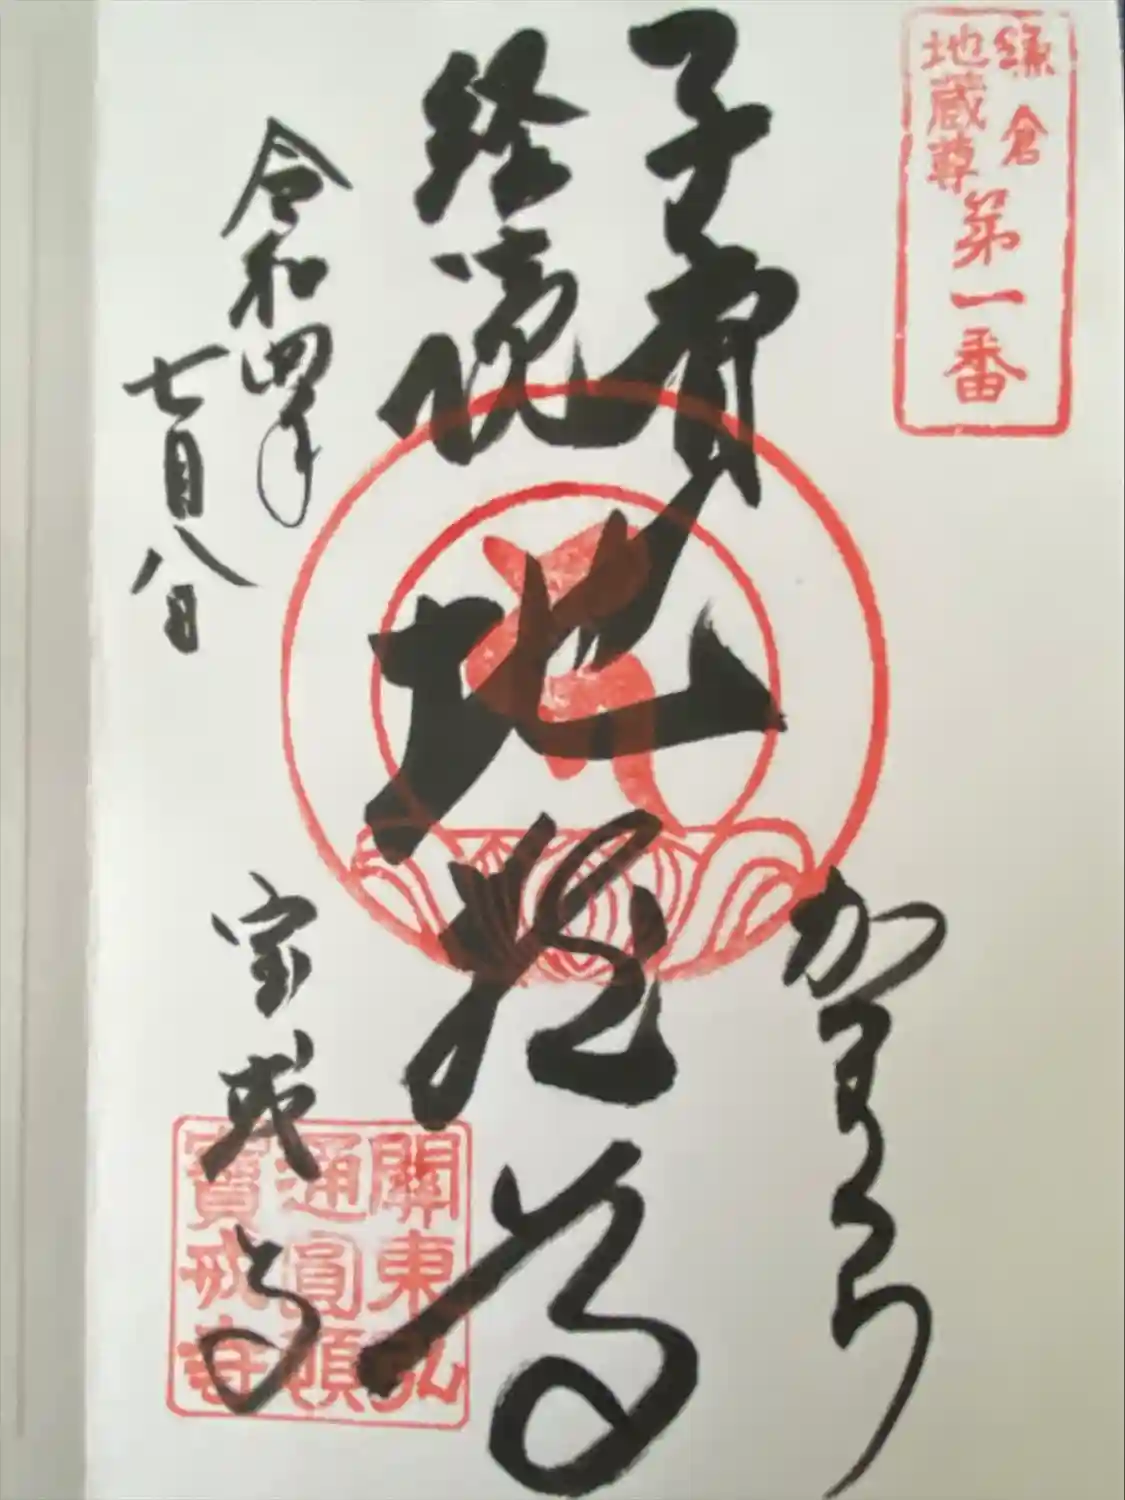 鎌倉
地蔵尊
第一番
子育
経読
地蔵尊
かまくら
令和四年
七月八日
宝戒寺
關東弘
通圓頓
寶戒寺